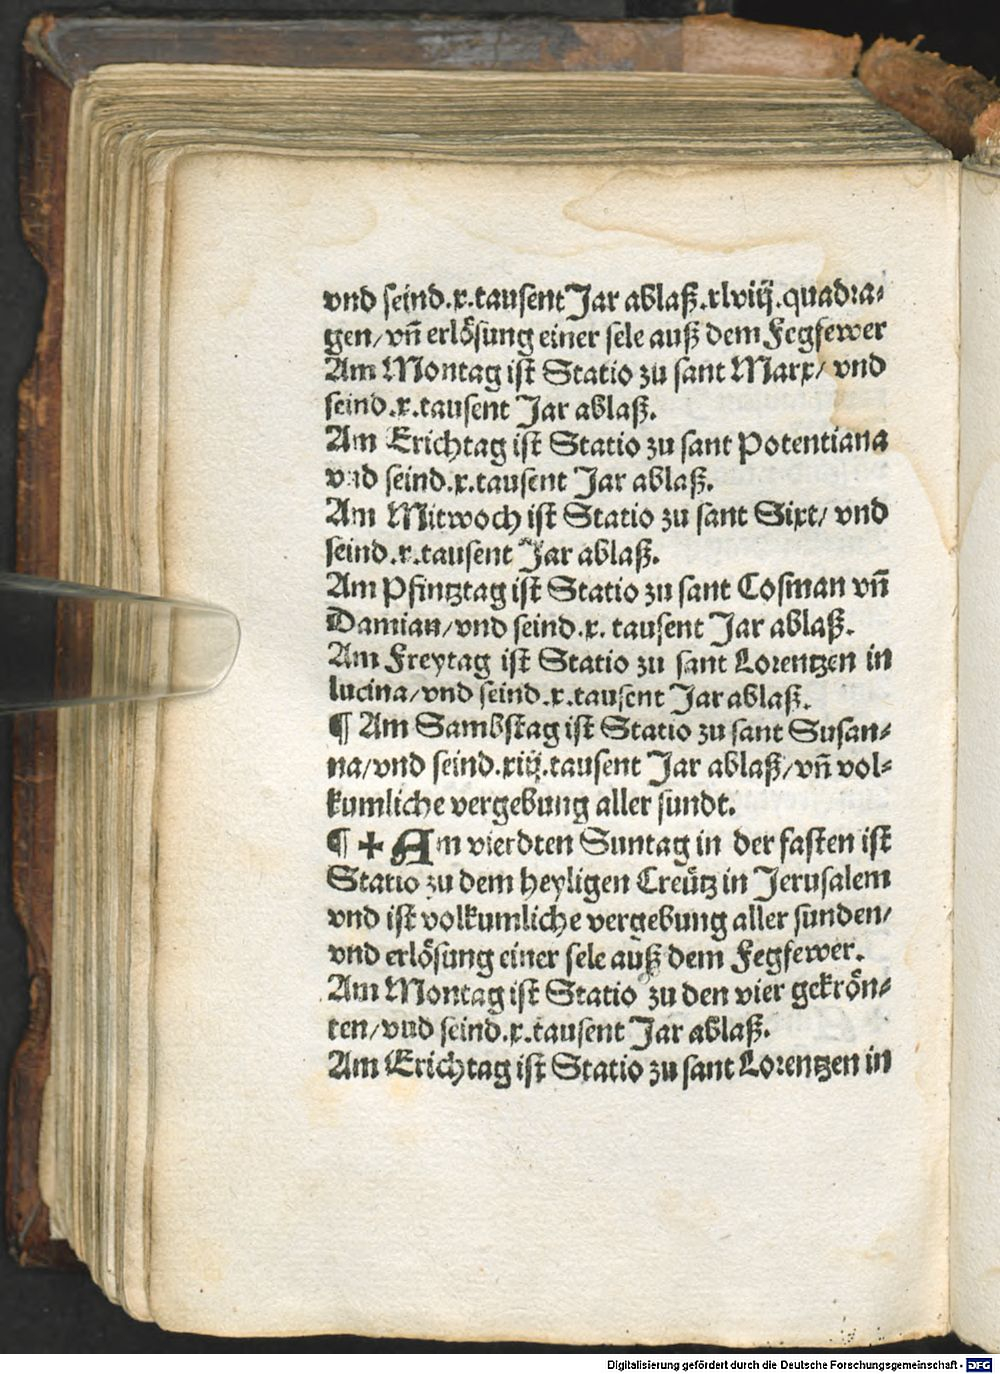 vnd seind.x.tausent Jar ablaß.xlviij.quadra-
gen/vñ erlösung einer sele auß dem Fegfewer
Am Montag ist Statio zu sant Marx/ vnd
seind.x.tausent Jar ablaß.
Am Erichtag ist Statio zu sant Potentiana
vnd seind.x.tausent Jar ablaß.
Am Mitwoch ist Statio zu sant Sixt/ vnd
seind.x.tausent Jar ablaß.
Am Pfintztag ist Statio zu sant Cosman vñ
Damian/vnd seind.x. tausent Jar ablaß.
Am Freytag ist Statio zu sant Lorentzen in
lucina/vnd seind.x.tausent Jar ablaß.
¶ Am Sambstag ist Statio zu sant Susan-
na/vnd seind.xiij.tausent Jar ablaß/vñ vol-
kumliche vergebung aller sundt.
¶ ✚ Am vierdten Suntag in der fasten ist
Statio zu dem heyligen Creütz in Jerusalem
vnd ist volkumliche vergebung aller sunden/
vnd erlösung einer sele auß dem Fegfewer.
Am Montag ist Statio zu den vier gekrön-
ten/vnd seind.x.tausent Jar ablaß.
Am Erichtag ist Statio zu sant Lorentzen in
Digitalisierung gefördert durch die Deutsche Forschungsgemeinschaft - DFG